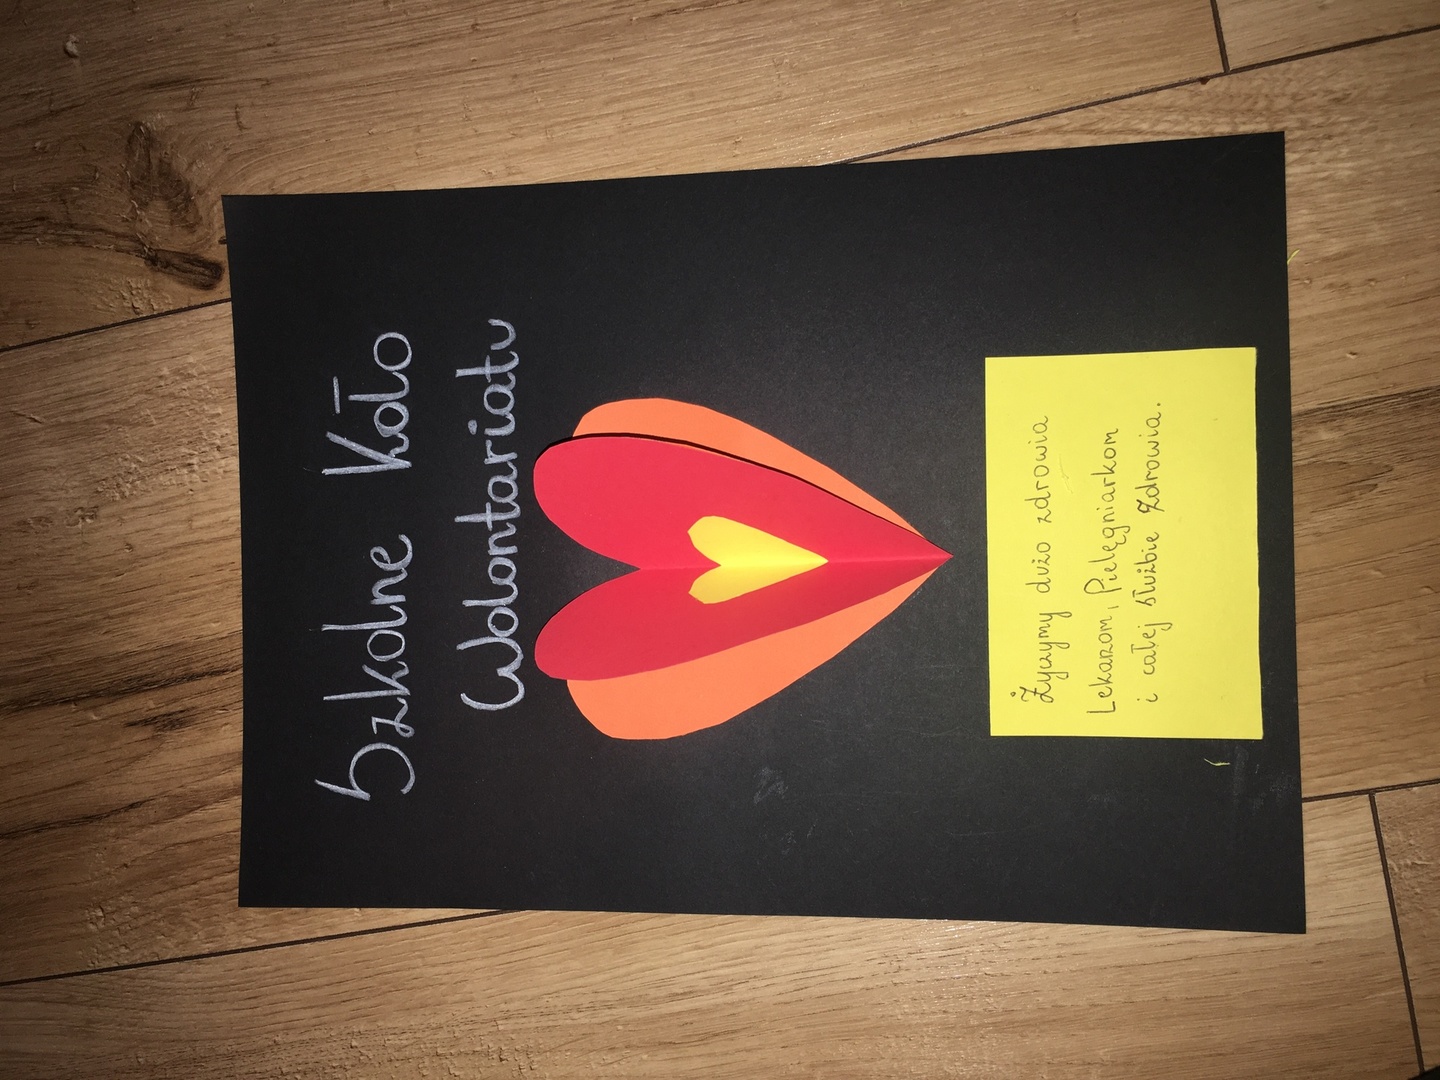 Szkolne Koło
Wolontariatu
Życzymy dużo zdrowia
Lekarzom, Pielęgniarkom
i całej służbie zdrowia.